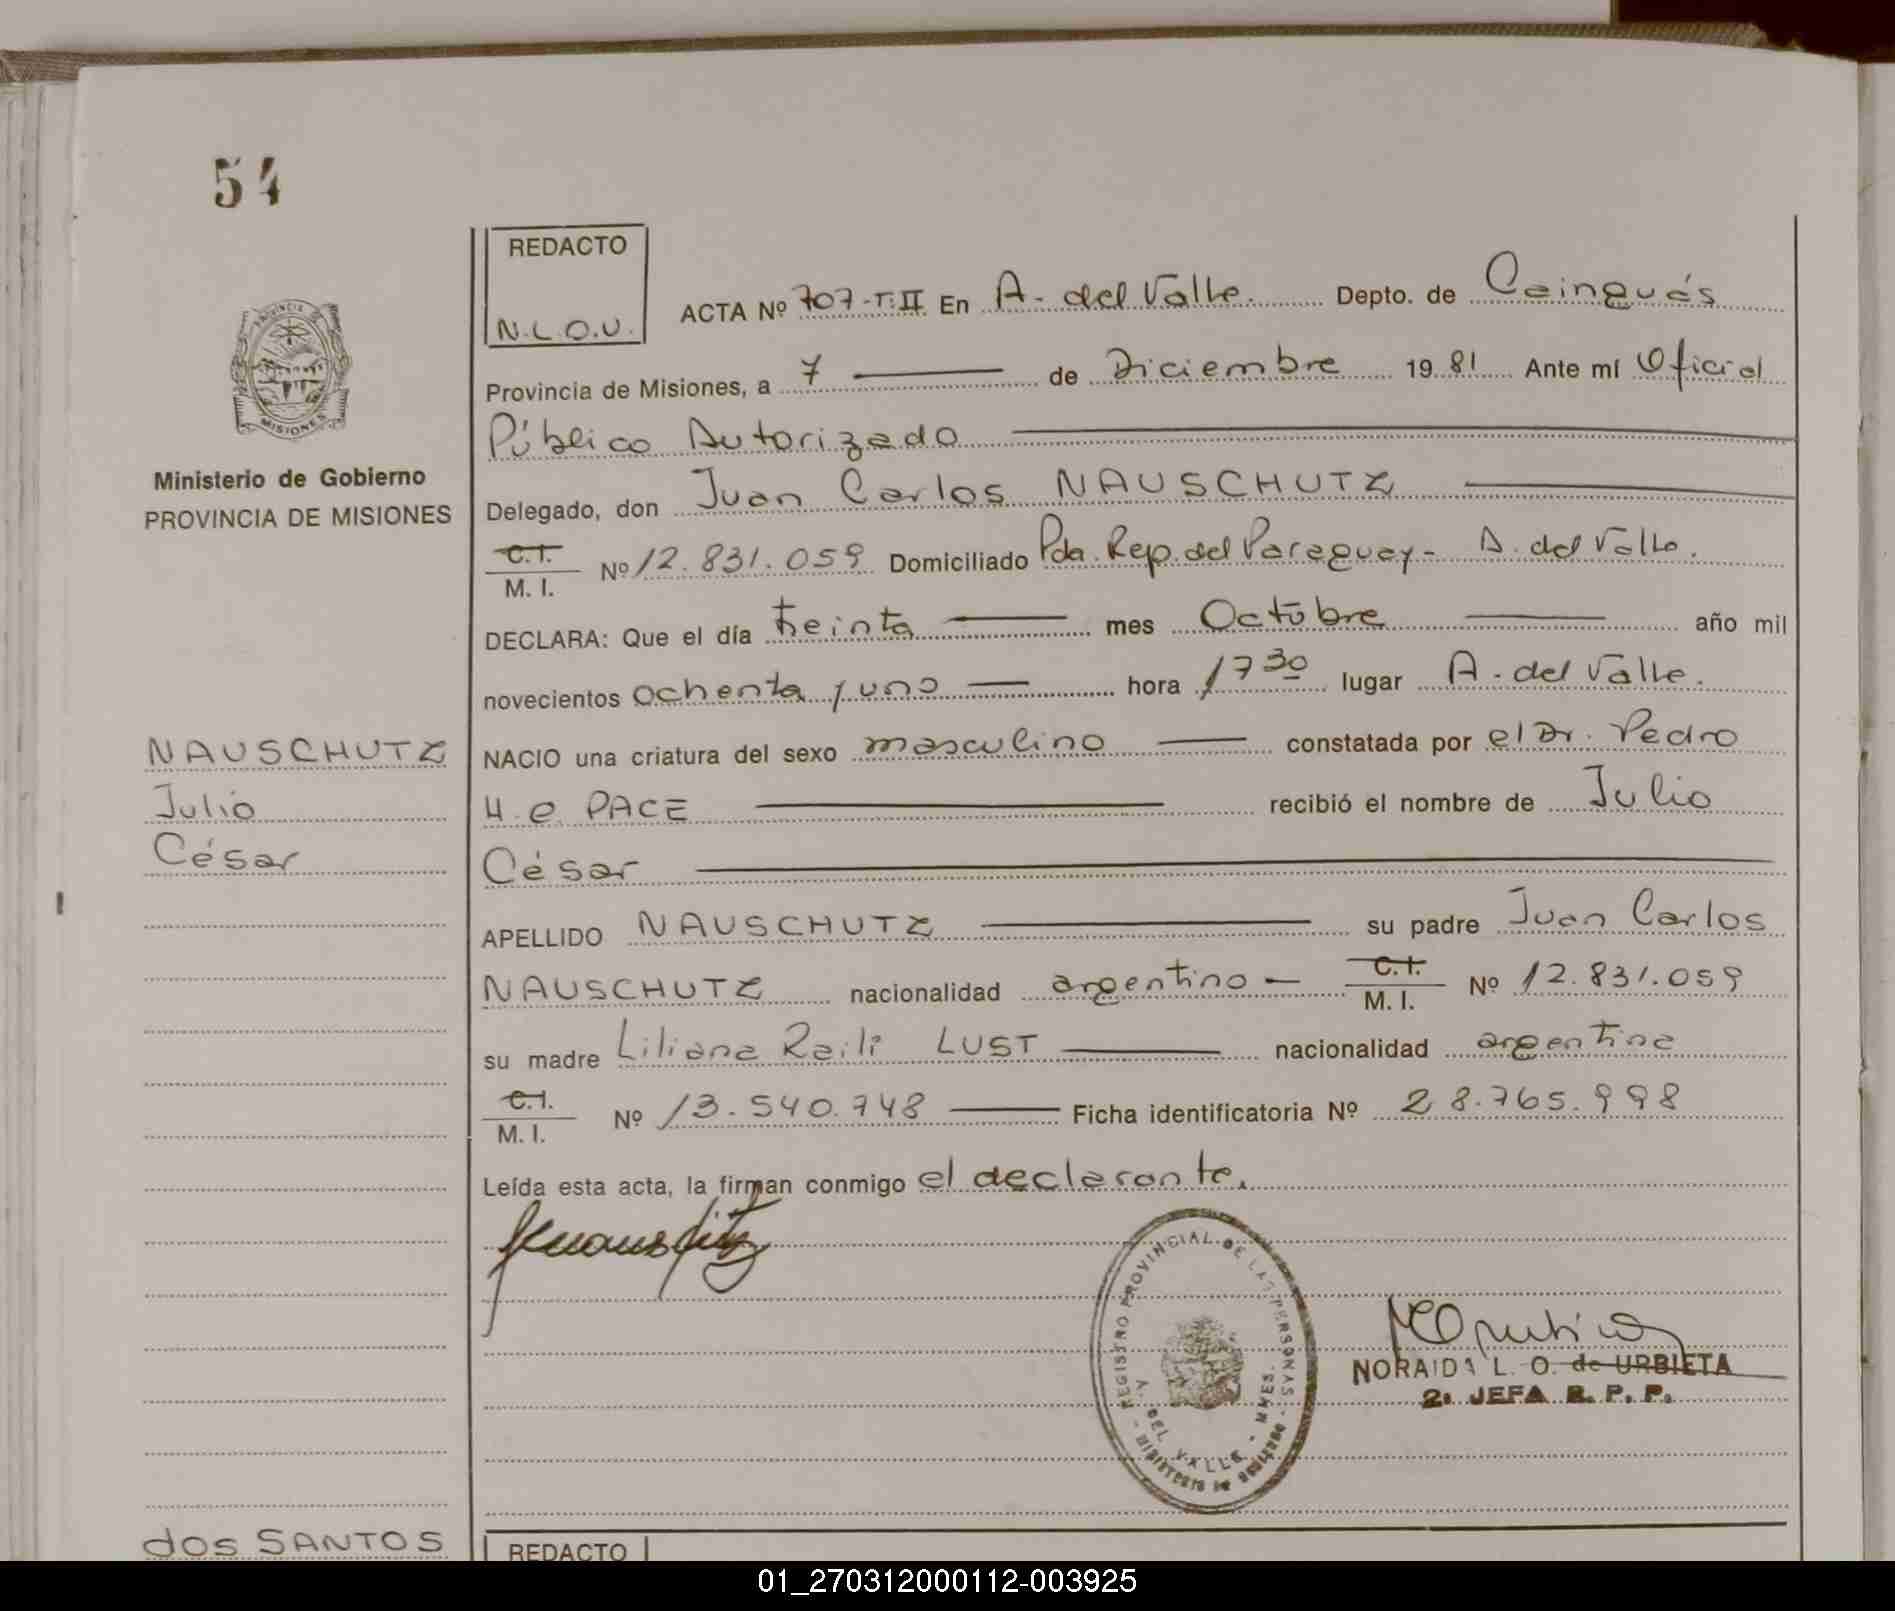 54
REDACTO
N.L.O.U.
ACTA Nº 707-T:II En A. del Valle. Depto. de Cainguás
Provincia de Misiones, a 7 de Diciembre 1981 Ante mí Oficial
Público Autorizado
Delegado, don Juan Carlos NAUSCHUTZ
C.I.
M. I. Nº 12.831.059 Domiciliado Pda. Rep. del Paraguay - A. del Valle.
DECLARA: Que el día treinta mes Octubre año mil
novecientos ochenta y uno hora 17 30 lugar A. del Valle.
NACIO una criatura del sexo masculino constatada por el Dr. Pedro
H. e PACE recibió el nombre de Julio
César
APELLIDO NAUSCHUTZ su padre Juan Carlos
NAUSCHUTZ nacionalidad argentino C.I. M. I. Nº 12.831.059
su madre Liliana Raili LUST nacionalidad argentina
C.I.
M. I. Nº 13.540.748 Ficha identificatoria Nº 28.765.998
Leída esta acta, la firman conmigo el declarante.
PROVINCIA
MISIONES
Ministerio de Gobierno
PROVINCIA DE MISIONES
NAUSCHUTZ
Julio
César
REGISTRO PROVINCIAL DE LAS PERSONAS
A. DEL VALLE - MNES.
MINISTERIO DE GOBIERNO
NORAIDA L. O. de URBIETA
2ª JEFA R. P. P.
dos SANTOS
REDACTO
01_270312000112-003925